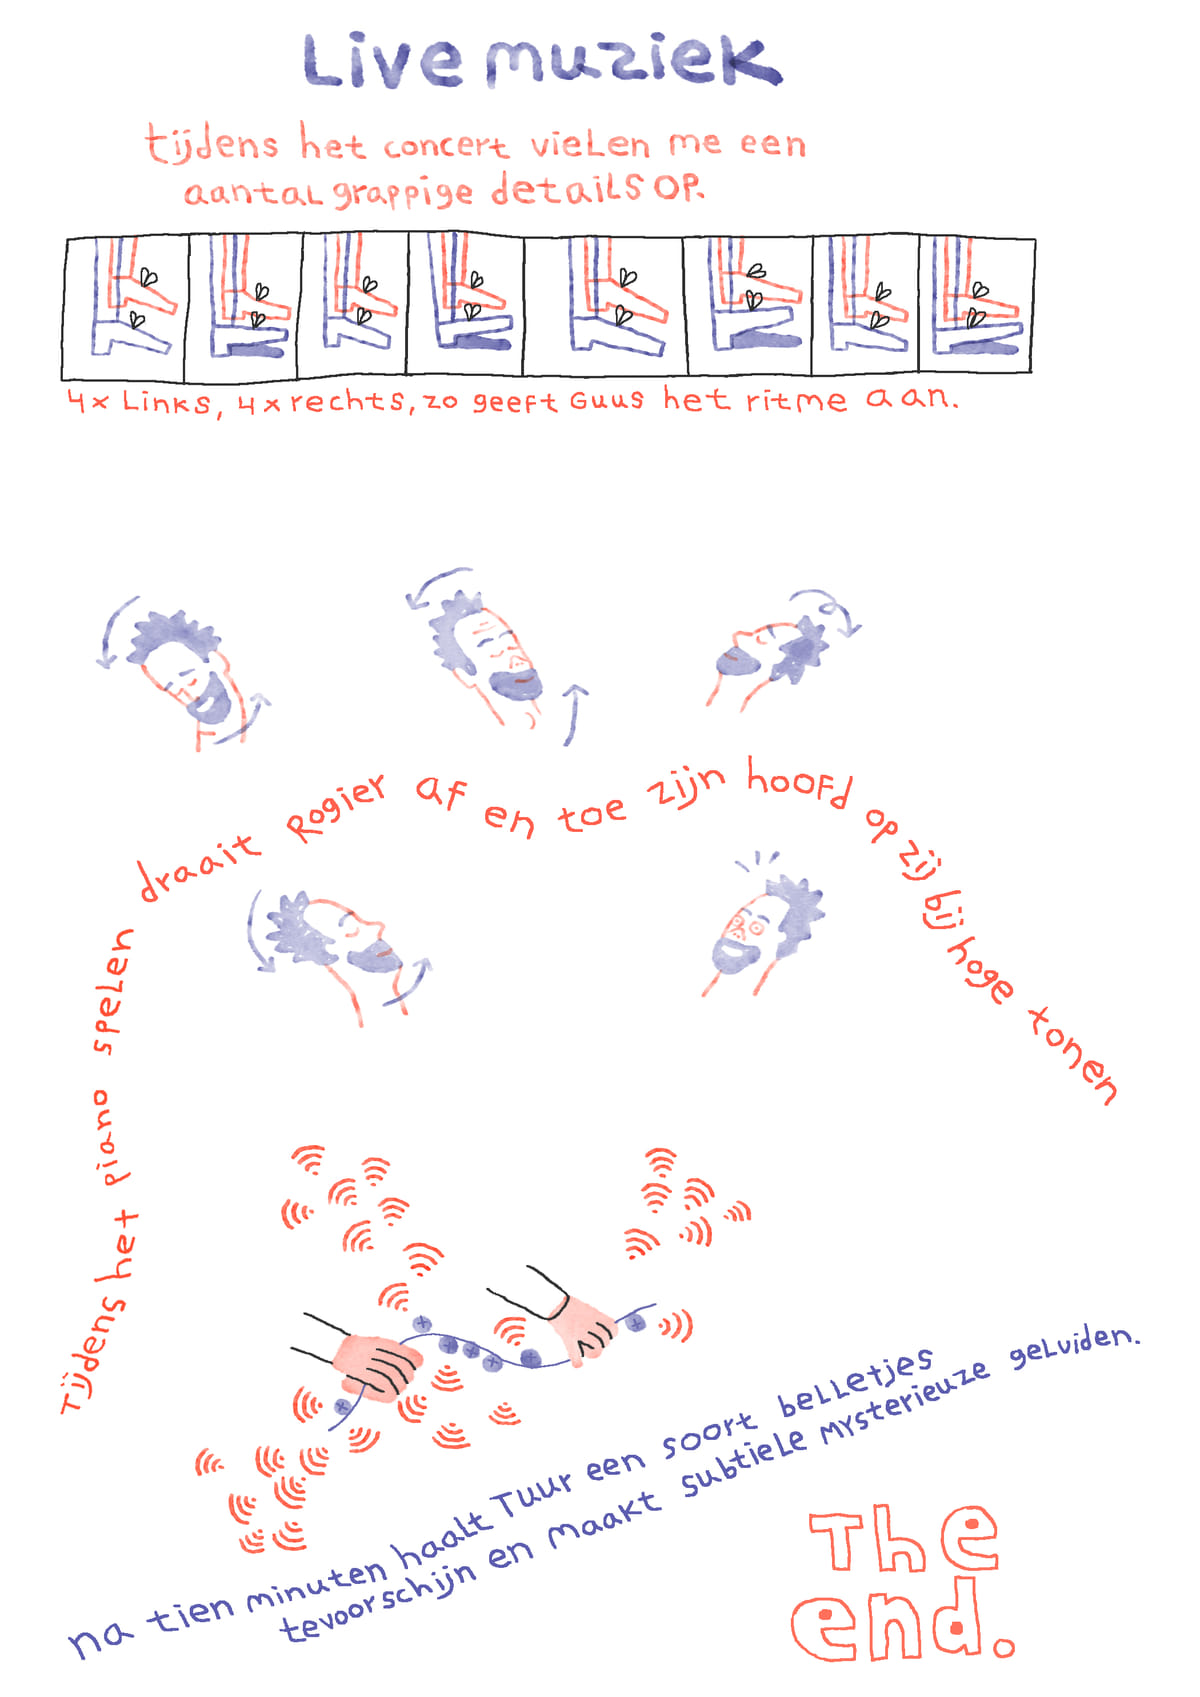 Live muziek
tijdens het concert vielen me een
aantal grappige details op.
4x links, 4x rechts, zo geeft Guus het ritme aan.
Tijdens het piano spelen draait Rogier af en toe zijn hoofd op zij bij hoge tonen
na tien minuten haalt Tuur een soort belletjes
tevoorschijn en maakt subtiele mysterieuze geluiden.
The
end.